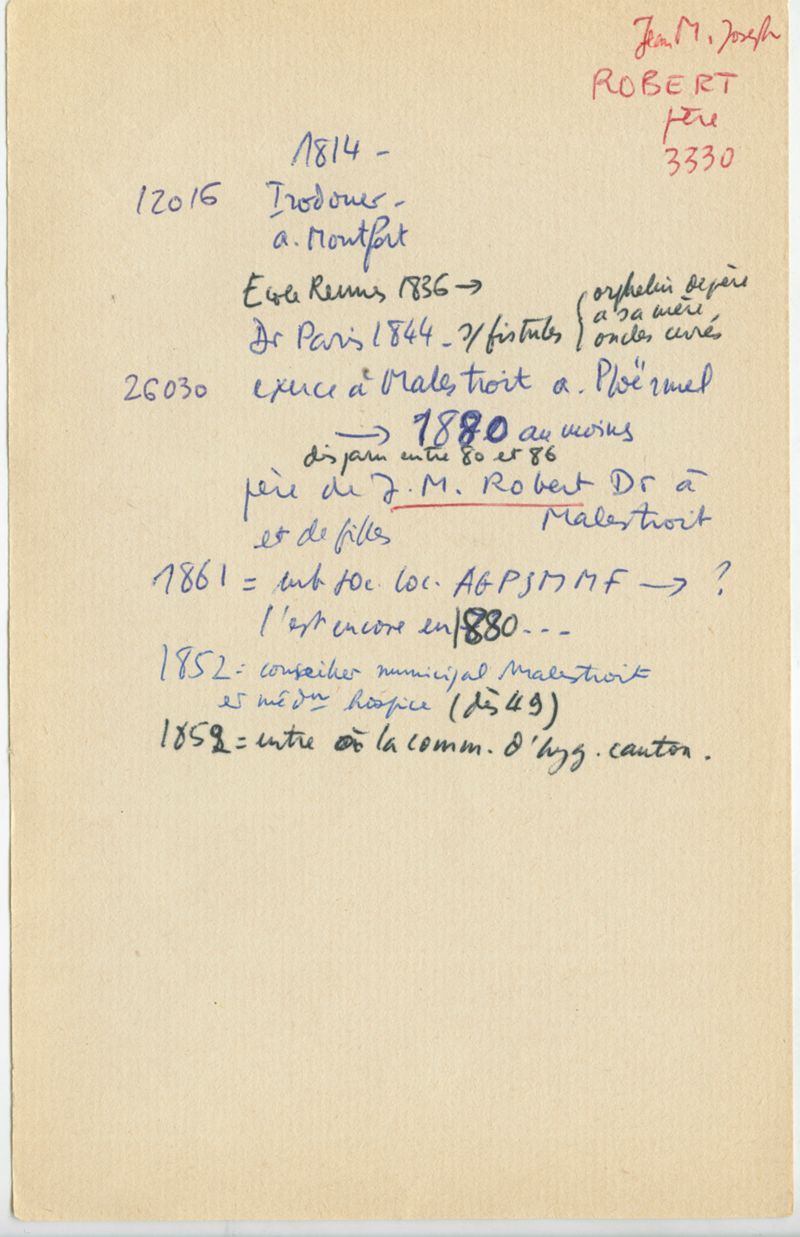 Jean M. Joseph
ROBERT
père
3330
1814 -
12016 Irodouer -
a. Montfort
Ecole Rennes 1836 →
orphelin de père
a sa mère,
oncles curés
Dr Paris 1844 - s/ fistules
26030 exerce à Malestroit a. Ploërmel
→ 1880 au moins
disparu entre 80 et 86
père de J. M. Robert Dr à
Malestroit
et de filles
1861 = mb soc. loc. AGPSMMF → ?
l'est encore en 1880 ---
1852 = conseiller municipal Malestroit
et médn hospice (dès 49)
1852 = entre à la comm. d'hyg. canton.